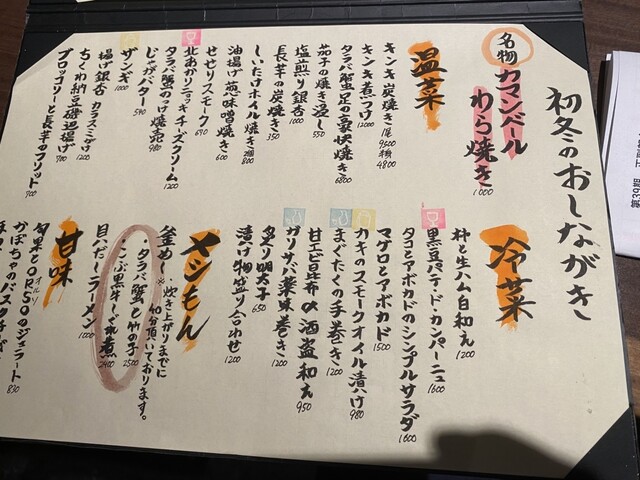 初冬のおしながき
名物 カマンベール
わら焼き 1000
温菜
キンキ炭焼き 1尾 9500 半身 4800
キンキ煮つけ 12000
タラバ蟹足の豪快焼き 6800
茄子の焼き浸し 550
塩煎り銀杏 1000
長芋の炭焼き 350
しいたけホイル焼き 2個 800
油揚げ葱味噌焼き 600
せせりスモーク 690
北あかりニョッキ チーズクリーム 1200
タラバ蟹のっけ焼売 980
じゃがバター 590
ザンギ 1000
揚げ銀杏 カラスミがけ 1200
ちくわ納豆磯辺揚げ 700
ブロッコリーと長芋のフリット 700
冷菜
柿と生ハム白和え 1200
黒豆パテ・ド・カンパーニュ 1600
タコとアボカドのシンプルサラダ 1600
マグロとアボカド 1500
カキのスモークオイル漬け 980
まぐたくの手巻き 1200
甘エビ昆布〆酒盗和え 950
ガリサバ薬味巻き 1200
炙り明太子 650
漬け物盛り合わせ 1200
メシもん
釜めし ※炊き上がりまでに
40分頂いております。
・タラバ蟹と竹の子 2500
・こぶ黒牛しぐれ煮 2400
貝だしラーメン 1000
甘味
旬果とORSOのジェラート 830
オルソ
かぼちゃのバスクチーズ
第39期